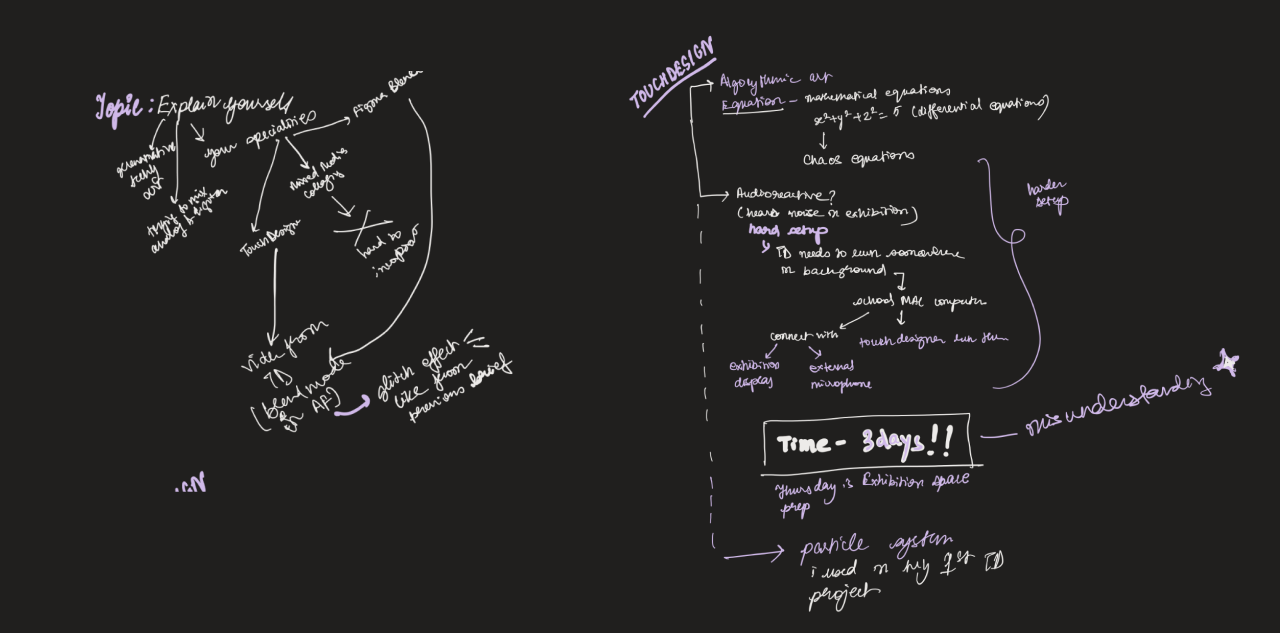 Topic: Explain yourself
generative
art
your specialities
Figma Blender
trying to mix
analog & digital
mixed media
collaging
hard to
TouchDesign
video from
TD
(blend mode
in AE)
glitch effect
like from
previous brief
TOUCHDESIGN
Algorythmic art
Equation - mathematical equations
x²+y²+z² = 5 (differential equations)
Chaos equations
Audioreactive?
(hears noise in exhibition)
hard setup
TD needs to run somewhere
in background
school MAC computer
connect with
touch designer run
exhibition
display
external
microphone
harder
setup
Time - 3days!!
misunderstanding
Thursday is Exhibition space
prep
particle system
i used in my 1st TD
project